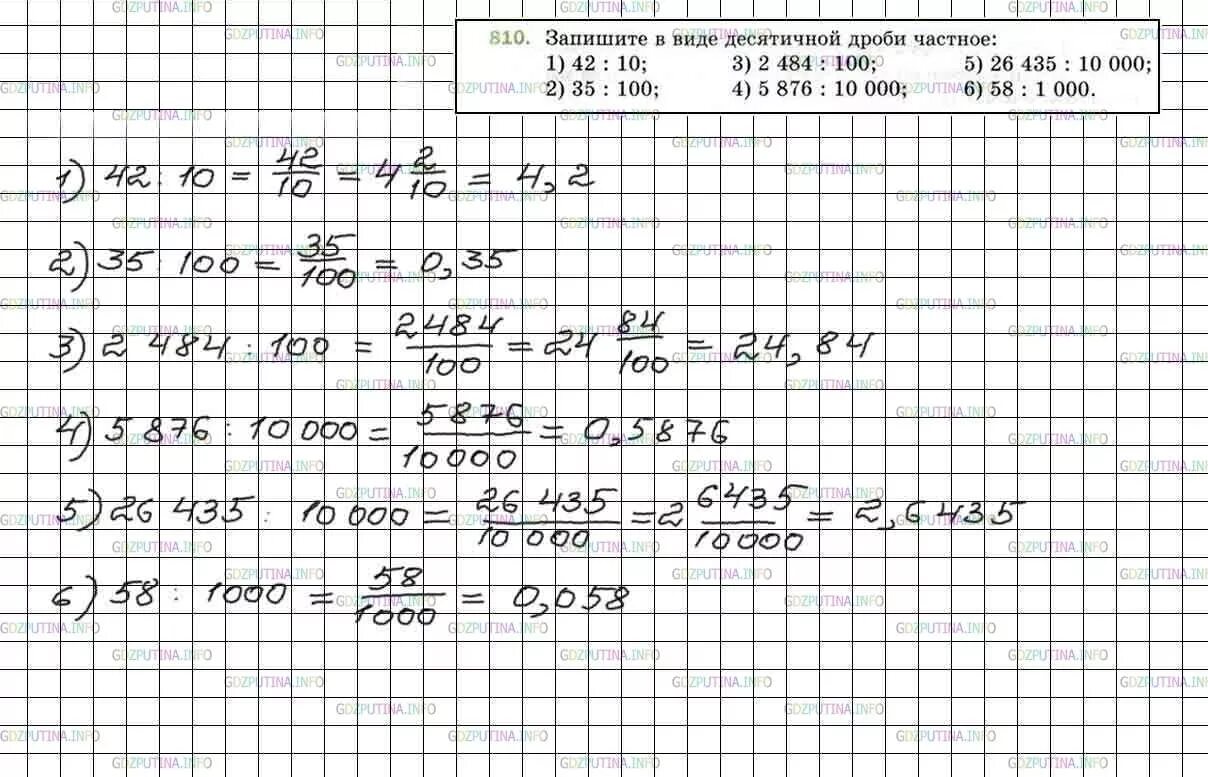 810. Запишите в виде десятичной дроби частное:
1) 42 : 10; 3) 2 484 : 100; 5) 26 435 : 10 000;
2) 35 : 100; 4) 5 876 : 10 000; 6) 58 : 1 000.
1) 42 : 10 = 42/10 = 4 2/10 = 4,2
2) 35 : 100 = 35/100 = 0,35
3) 2 484 : 100 = 2484/100 = 24 84/100 = 24,84
4) 5 876 : 10 000 = 5876/10000 = 0,5876
5) 26 435 : 10 000 = 26 435/10 000 = 2 6435/10000 = 2,6435
6) 58 : 1000 = 58/1000 = 0,058
GDZPUTINA.INFO